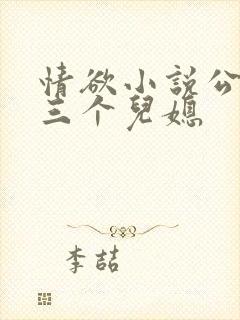 情欲小説公
三个兒媳
李喆